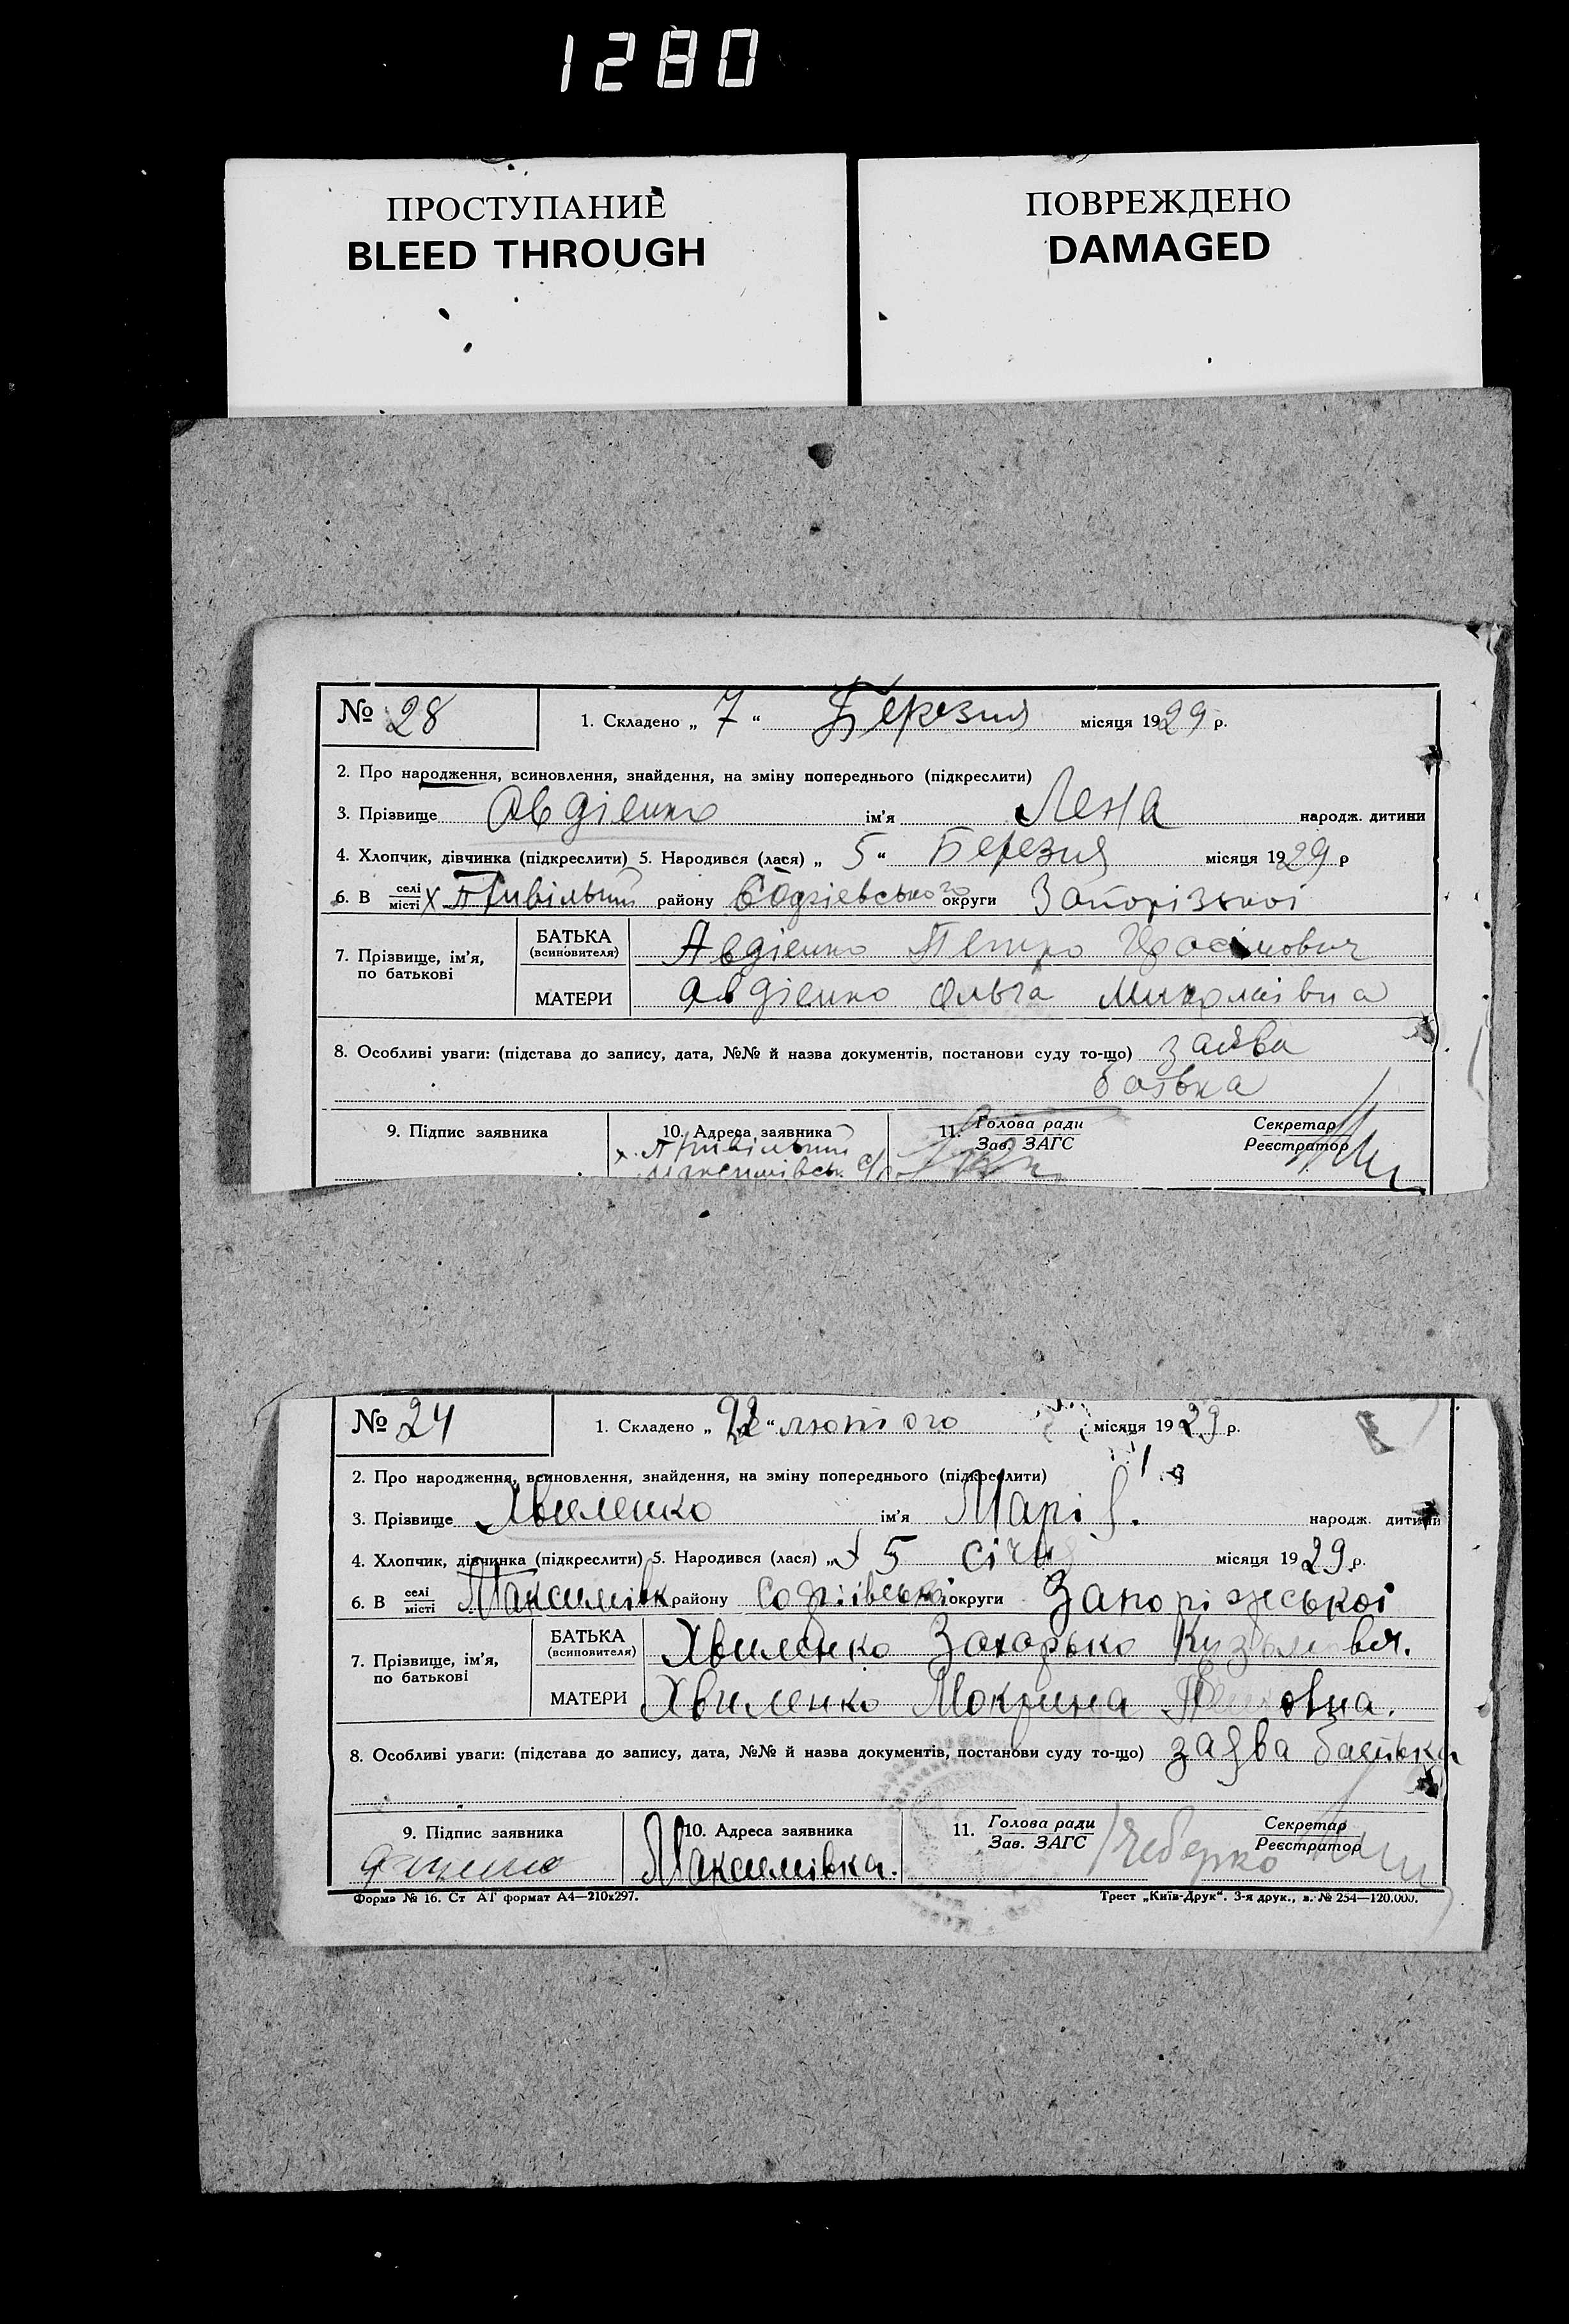 1280
ПРОСТУПАНИЕ
BLEED THROUGH
ПОВРЕЖДЕНО
DAMAGED
№ 28
1. Складено „ 7 “ Березня місяця 1929 р.
2. Про народження, всиновлення, знайдення, на зміну попереднього (підкреслити)
3. Прізвище Авдієнко ім'я Лена народж. дитини
4. Хлопчик, дівчинка (підкреслити) 5. Народився (лася) „ 5 “ Березня місяця 1929 р
6. В селі місті х Привільний району Софієвського округи Запорізької
7. Прізвище, ім'я, по батькові
БАТЬКА (всиновителя) Авдієнко Петро
МАТЕРИ Авдієнко Ольга Миколаівна
8. Особливі уваги: (підстава до запису, дата, №№ й назва документів, постанови суду то-що) заява
батька
9. Підпис заявника
10. Адреса заявника
х. Привільний
11. Голова ради Зав. ЗАГС
Секретар Реєстратор
№ 24
1. Складено „ 22 “ лютого місяця 1929 р.
2. Про народження, всиновлення, знайдення, на зміну попереднього (підкреслити)
3. Прізвище Хвиленко ім'я Марія. народж. дитини
4. Хлопчик, дівчинка (підкреслити) 5. Народився (лася) „ 5 січня місяця 1929 р.
6. В селі місті Максимівк району округи
7. Прізвище, ім'я, по батькові
БАТЬКА (всиновителя) Хвиленко Захарько
МАТЕРИ Хвиленко Мокрина
8. Особливі уваги: (підстава до запису, дата, №№ й назва документів, постанови суду то-що) заява батька
9. Підпис заявника
10. Адреса заявника
Максимівка.
11. Голова ради Зав. ЗАГС
Секретар Реєстратор
Форма № 16. Ст АГ формат А4—210х297.
Трест „Київ-Друк“. 3-я друк., з. № 254—120.000.